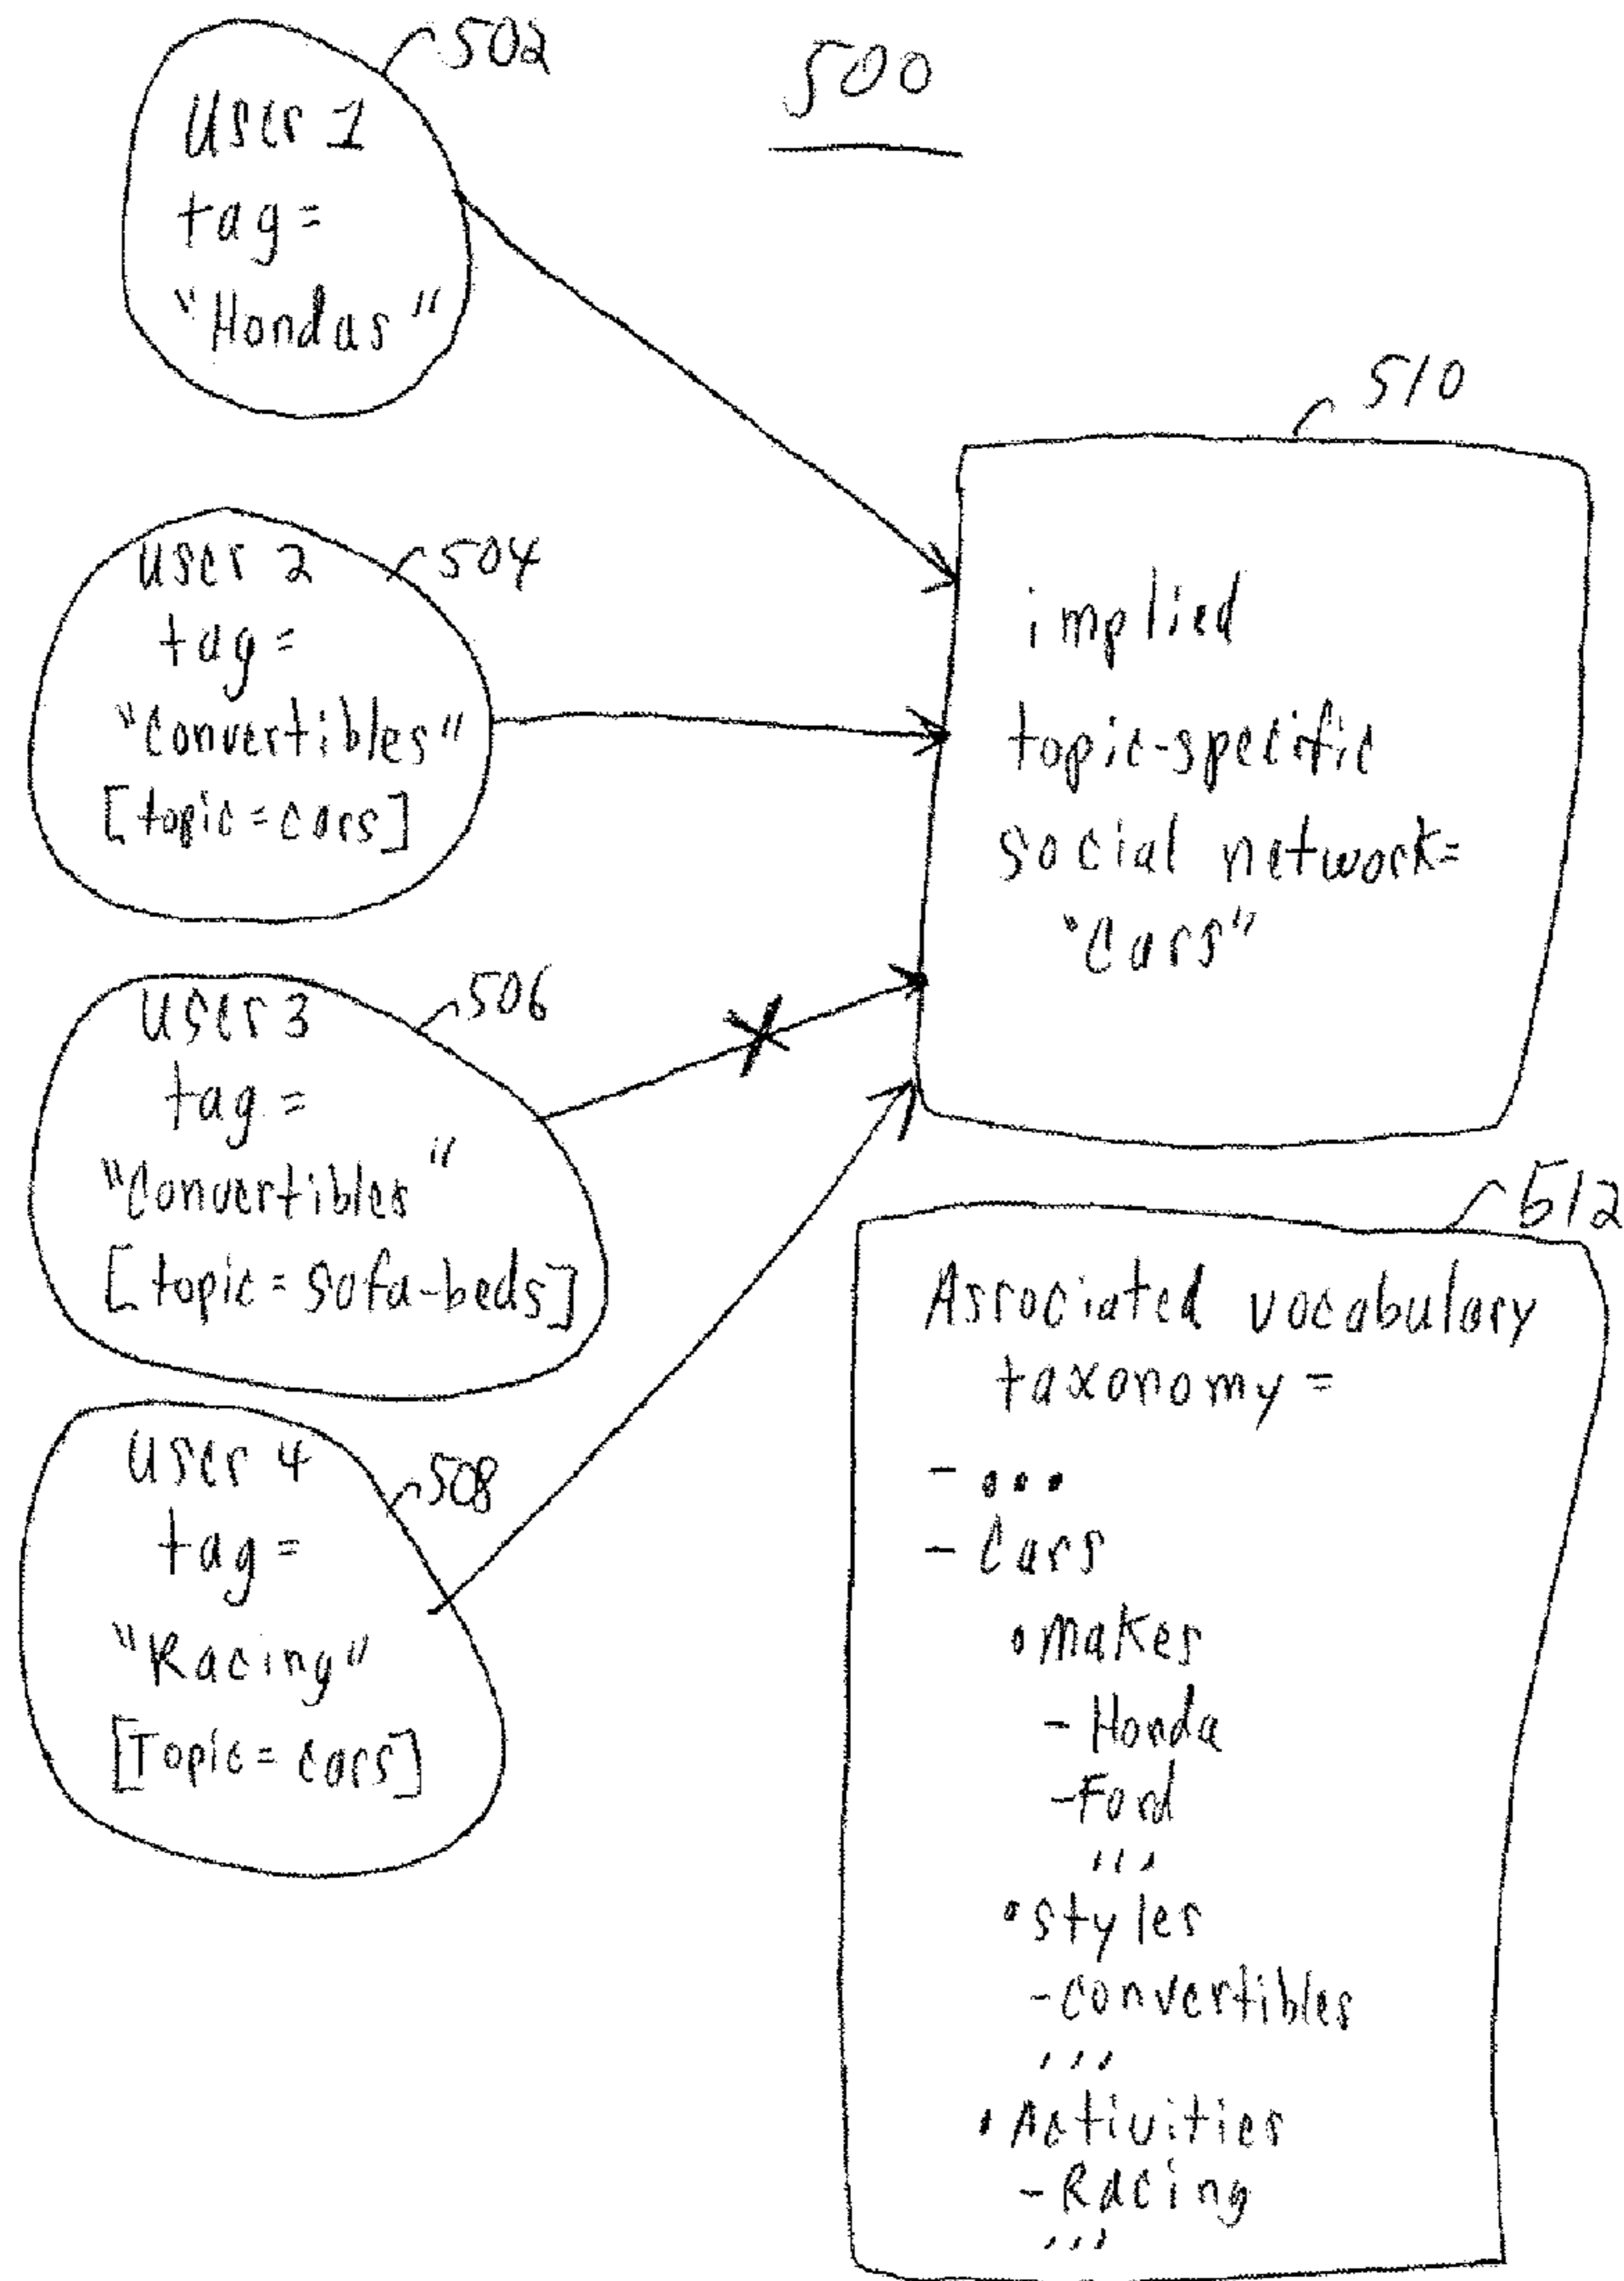 500
502
User 1
tag =
"Hondas"
504
User 2
tag =
"Convertibles"
[topic = cars]
506
User 3
tag =
"Convertibles"
[topic = sofa-beds]
508
User 4
tag =
"Racing"
[Topic = cars]
510
implied
topic-specific
social network=
"Cars"
512
Associated vocabulary
taxonomy =
- ...
- Cars
• Makes
- Honda
- Ford
...
• Styles
- Convertibles
...
• Activities
- Racing
...